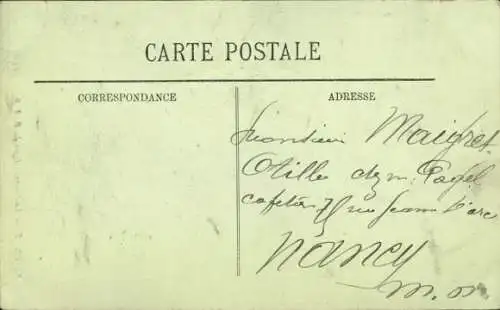 CARTE POSTALE
CORRESPONDANCE
ADRESSE
Monsieur Maigret
chez m. Pagel
75 rue Jeanne d'arc
Nancy
m. m.